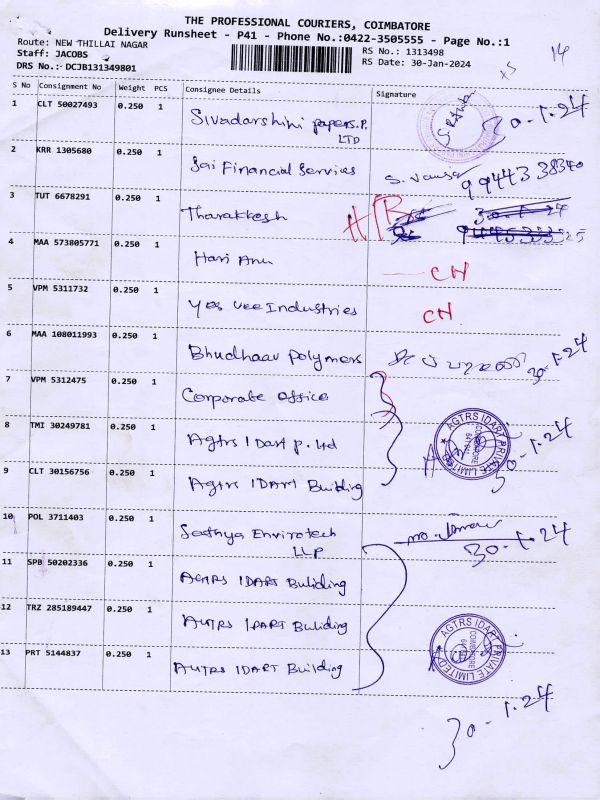 THE PROFESSIONAL COURIERS, COIMBATORE
Delivery Runsheet - P41 - Phone No.:0422-3505555 - Page No.:1
Route: NEW THILLAI NAGAR
Staff: JACOBS
DRS No.: DCJB131349801
RS No.: 1313498
RS Date: 30-Jan-2024
14
S No Consignment No Weight PCS Consignee Details Signature
1 CLT 50027493 0.250 1 Sivadarshini papers.P. LTD 30.1.24
2 KRR 1305680 0.250 1 Sai Financial Services 9944338340
3 TUT 6678291 0.250 1 Tharakkesh
4 MAA 573805771 0.250 1 Hari Anu CH
5 VPM 5311732 0.250 1 Yes Vee Industries CH
6 MAA 108011993 0.250 1 Bhudhaav polymers 30.1.24
7 VPM 5312475 0.250 1 Corporate office
8 TMI 30249781 0.250 1 Agtrs IDart p. Ltd 30.1.24
AGTRS IDART PRIVATE LIMITED
COIMBATORE
9 CLT 30156756 0.250 1 Agtrs IDART Building
10 POL 3711403 0.250 1 Sathya Envirotech LLP 30.1.24
11 SPB 50202336 0.250 1 AGTRS IDART Buliding
12 TRZ 285189447 0.250 1 AUTRS IDART Buliding
13 PRT 5144837 0.250 1 AUTRS IDART Building
AGTRS IDART PRIVATE LIMITED
COIMBATORE
30.1.24